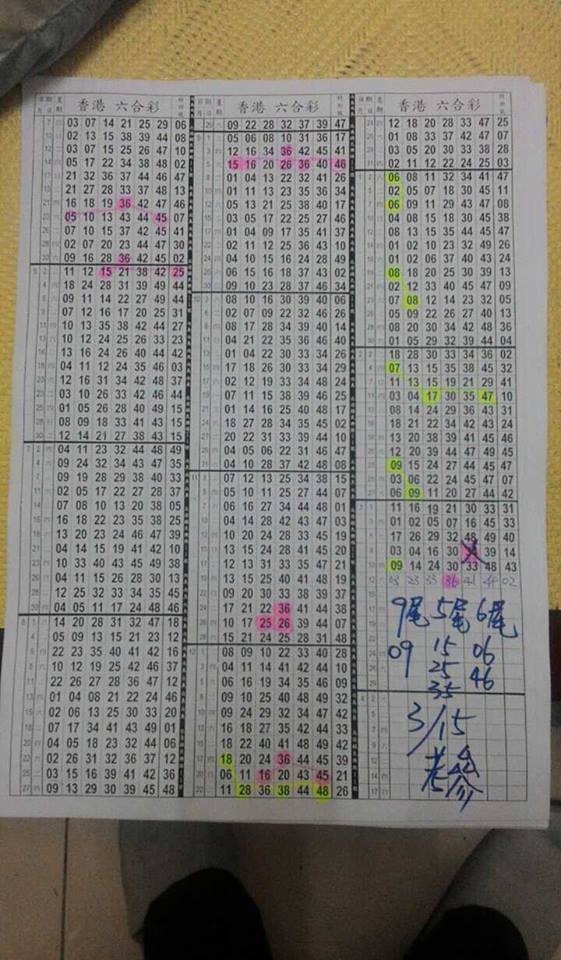 香港 六合彩
03 07 14 21 25 29 06
02 13 15 38 39 44 08
03 14 15 25 26 47 10
05 17 22 34 38 48 02
21 32 36 37 44 46 47
21 27 28 33 37 48 13
16 18 19 36 42 47 46
05 10 13 43 44 45 07
07 10 15 37 42 45 41
02 07 20 23 44 47 30
09 16 28 36 42 45 02
11 12 15 21 38 42 25
18 24 28 31 39 49 44
09 11 14 22 27 49 44
07 12 16 17 20 25 31
10 13 35 38 42 44 27
10 12 24 25 26 33 23
13 16 24 26 40 44 42
04 11 12 24 35 46 03
12 16 31 34 42 48 37
03 10 26 33 42 46 44
01 05 26 28 40 49 15
08 09 18 33 41 43 15
12 14 21 27 38 43 15
04 11 23 32 44 46 49
09 24 32 34 43 47 35
09 19 28 29 38 40 33
02 05 17 22 27 28 37
07 08 10 13 20 38 05
16 18 22 23 35 38 25
13 20 23 24 46 47 39
04 14 15 19 41 42 10
10 33 40 43 45 49 38
04 11 15 26 28 30 13
12 25 32 33 34 35 45
04 05 11 17 24 48 46
14 20 28 31 32 47 18
05 09 13 15 21 23 12
22 23 35 40 41 42 16
10 12 19 25 42 46 37
22 26 27 28 36 47 12
01 04 08 21 22 24 46
02 06 13 25 30 33 20
07 17 34 41 43 49 01
04 05 18 23 32 44 06
02 26 31 32 36 37 12
03 15 16 39 41 42 36
09 13 29 30 39 45 48
香港 六合彩
09 22 28 32 37 39 47
05 06 08 10 31 36 17
12 16 34 36 42 45 41
15 16 20 26 36 40 46
01 04 13 22 32 41 26
01 11 13 23 35 36 34
03 05 17 22 25 27 46
01 04 09 17 35 41 37
02 11 12 25 36 43 10
04 10 15 16 24 28 49
06 15 16 18 37 43 02
09 10 23 28 37 46 34
08 10 16 30 39 40 06
02 07 09 22 32 46 26
08 17 28 34 39 40 14
04 21 22 35 36 40 14
01 04 22 30 33 34 26
02 12 19 33 34 48 24
07 09 10 19 30 33 21
01 14 16 25 40 48 17
18 27 28 34 35 44 02
20 22 31 33 39 44 10
04 05 06 22 31 46 47
04 10 28 37 42 48 08
07 12 13 25 34 38 15
05 10 11 25 27 44 07
06 16 27 34 44 48 01
04 14 28 42 43 47 03
10 20 24 28 33 45 19
13 15 24 28 41 45 20
13 15 25 40 41 48 19
09 20 30 33 38 39 37
17 21 22 36 41 44 38
10 17 25 26 39 44 07
15 21 24 25 28 31 48
08 09 10 22 33 40 28
04 11 14 41 42 44 10
06 16 19 34 35 46 09
09 10 25 40 48 49 32
09 24 29 32 34 47 42
16 18 27 35 42 44 33
22 40 41 48 49 42
18 20 24 36 44 45 39
06 11 16 20 43 45 21
11 28 36 38 44 48 26
香港 六合彩
12 18 20 28 33 47 25
01 08 33 37 42 47 07
03 05 20 30 33 38 28
02 11 12 22 24 25 03
06 08 11 32 34 41 47
02 05 07 18 30 45 11
06 09 11 29 43 47 08
04 08 15 18 30 45 38
08 13 15 35 44 45 47
01 02 10 23 32 49 26
01 02 06 37 40 43 24
08 18 20 25 30 39 13
02 12 33 40 45 47 09
07 08 12 14 23 32 05
05 09 22 26 27 40 13
08 20 30 34 42 48 36
01 05 29 32 39 44 04
18 28 30 33 34 36 02
07 13 15 35 38 45 32
11 13 15 19 21 29 41
03 04 17 30 35 47 10
08 14 24 29 36 43 31
18 21 22 34 42 43 24
13 20 38 39 41 45 46
12 20 39 44 47 49 45
09 15 24 27 44 45 47
03 06 22 24 45 47 07
06 09 11 20 27 44 42
11 16 19 21 30 33 31
01 02 05 07 16 45 33
09 14 24 30 33 48 43
03 23 33 36 41 49 02
9尾 5尾 6尾
09 15 06
25 46
35
3/15